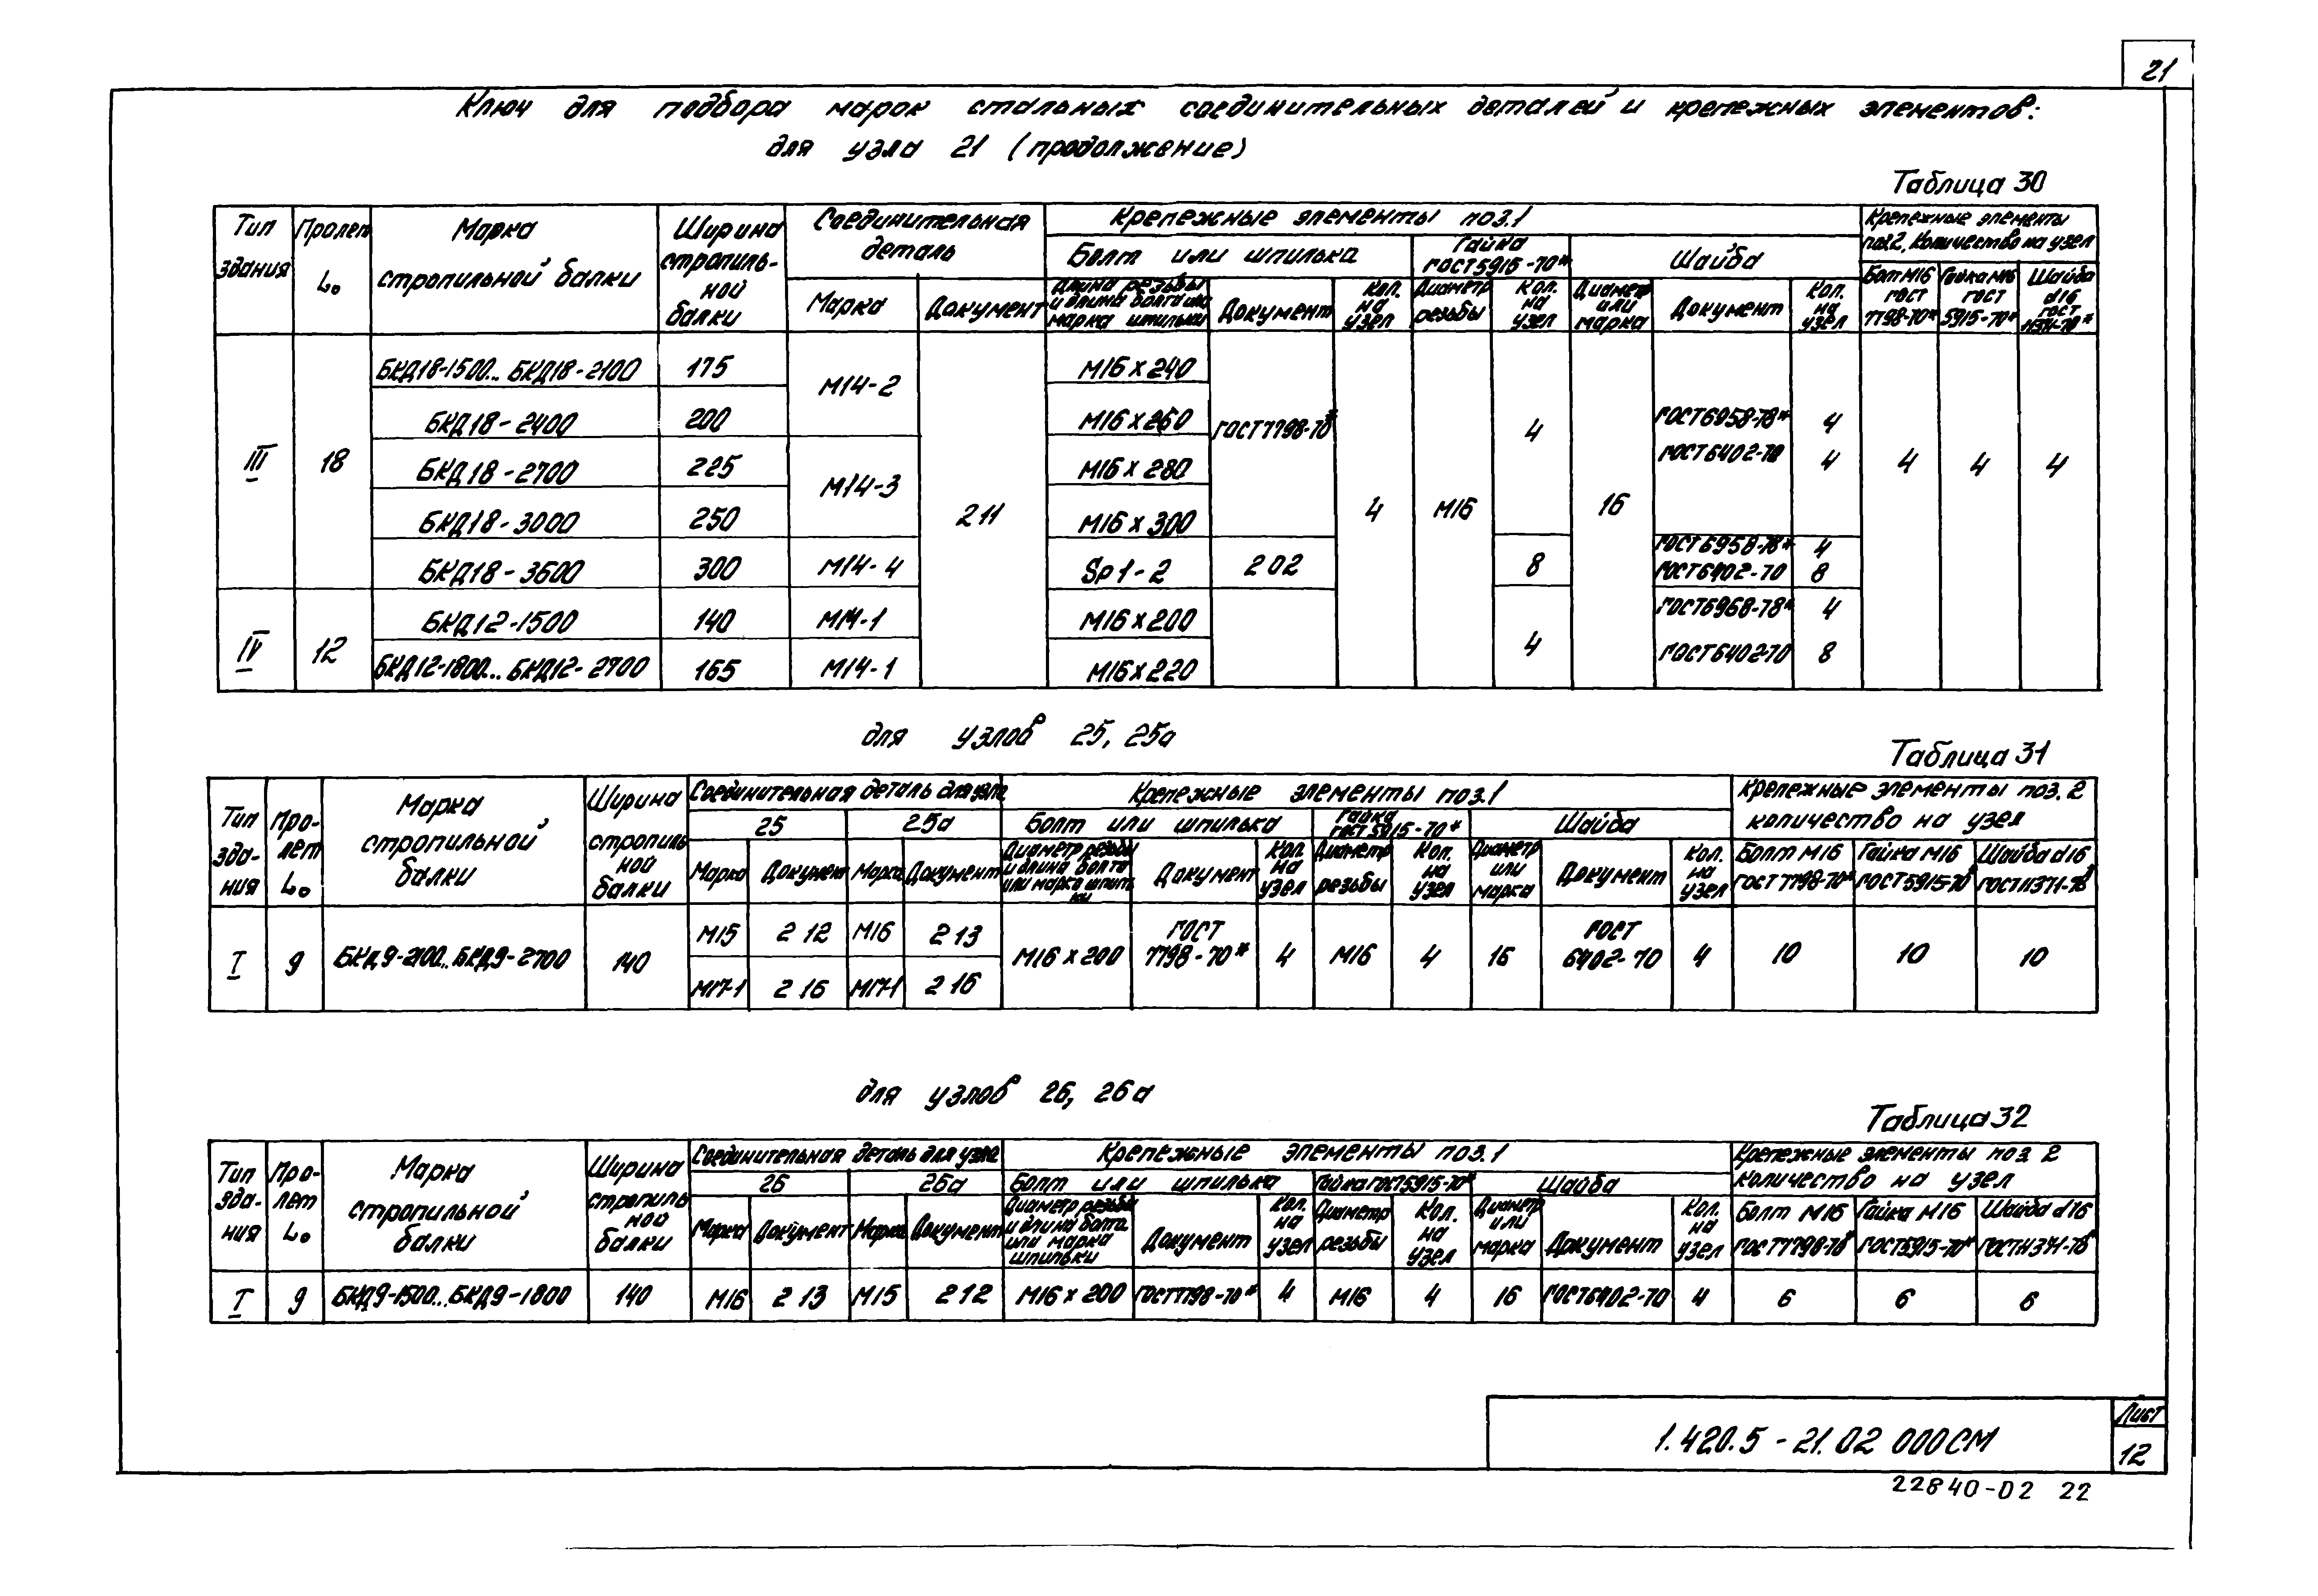 21
Ключ для подбора марок стальных соединительных деталей и крепежных элементов:
для узла 21 (продолжение)
Таблица 30
Тип здания | Пролет L₀ | Марка стропильной балки | Ширина стропиль-ной балки | Соединительная деталь | Крепежные элементы поз.1 | Крепежные элементы поз.2, Количество на узел
Болт или шпилька | Гайка ГОСТ 5915-70* | Шайба | Болт М16 ГОСТ 7798-70* | Гайка М16 ГОСТ 5915-70* | Шайба d16 ГОСТ 11371-78*
Марка | Документ | Длина резьбы и длина болта или марка шпильки | Документ | Кол. на узел | Диаметр резьбы | Кол. на узел | Диаметр или марка | Документ | Кол. на узел
III | 18 | БКД18-1500... БКД18-2100 | 175 | М14-2 | 211 | М16 х 240 | ГОСТ 7798-70* | 4 | М16 | 4 | 16 | ГОСТ 6958-78* | 4 | 4 | 4 | 4
БКД18-2400 | 200 | М16 х 260 | ГОСТ 6402-70 | 4
БКД18-2700 | 225 | М14-3 | М16 х 280
БКД18-3000 | 250 | М16 х 300
БКД18-3600 | 300 | М14-4 | Sp1-2 | 202 | 8 | ГОСТ 6958-78* | 4
ГОСТ 6402-70 | 8
IV | 12 | БКД12-1500 | 140 | М14-1 | М16 х 200 | 4 | ГОСТ 6968-78* | 4
БКД12-1800... БКД12-2700 | 165 | М14-1 | М16 х 220 | ГОСТ 6402-70 | 8
для узлов 25, 25а
Таблица 31
Тип зда-ния | Про-лет L₀ | Марка стропильной балки | Ширина стропиль ной балки | Соединительная деталь для узла | Крепежные элементы поз.1 | Крепежные элементы поз. 2 количество на узел
25 | 25а | Болт или шпилька | Гайка ГОСТ 5915-70* | Шайба
Марка | Документ | Марка | Документ | Диаметр резьбы и длина болта или марка шпильки | Документ | Кол. на узел | Диаметр резьбы | Кол. на узел | Диаметр или марка | Документ | Кол. на узел | Болт М16 ГОСТ 7798-70* | Гайка М16 ГОСТ 5915-70* | Шайба d16 ГОСТ 11371-78*
I | 9 | БКД9-2100... БКД9-2700 | 140 | М15 | 212 | М16 | 213 | М16 х 200 | ГОСТ 7798-70* | 4 | М16 | 4 | 16 | ГОСТ 6402-70 | 4 | 10 | 10 | 10
М17-1 | 216 | М17-1 | 216
для узлов 26, 26а
Таблица 32
Тип зда-ния | Про-лет L₀ | Марка стропильной балки | Ширина стропиль ной балки | Соединительная деталь для узла | Крепежные элементы поз.1 | Крепежные элементы поз 2 количество на узел
26 | 26а | Болт или шпилька | Гайка ГОСТ 5915-70* | Шайба
Марка | Документ | Марка | Документ | Диаметр резьбы и длина болта или марка шпильки | Документ | Кол. на узел | Диаметр резьбы | Кол. на узел | Диаметр или марка | Документ | Кол. на узел | Болт М16 ГОСТ 7798-70* | Гайка М16 ГОСТ 5915-70* | Шайба d16 ГОСТ 11371-78*
I | 9 | БКД9-1500... БКД9-1800 | 140 | М16 | 213 | М15 | 212 | М16 х 200 | ГОСТ 7798-70* | 4 | М16 | 4 | 16 | ГОСТ 6402-70 | 4 | 6 | 6 | 6
1.420.5-21.02 000СМ
Лист
12
22840-02 22